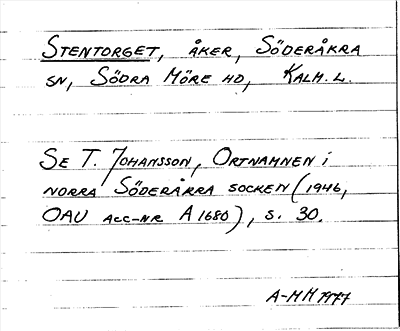 STENTORGET, ÅKER, SÖDERÅKRA
SN, SÖDRA MÖRE HD, KALM. L.
SE T. JOHANSSON, ORTNAMNEN i
NORRA SÖDERÅKRA SOCKEN (1946,
OAU ACC-NR A 1680), S. 30.
A-MH 1977